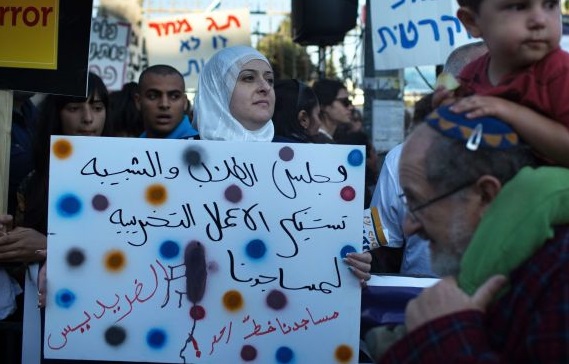 rror
תג מחיר
זו לא
קרטית
مجلس الطلاب والشبيبه
تستنكر الاعمال التخريبيه
لمساجدنا
الفريديس
مساجدنا خط احمر